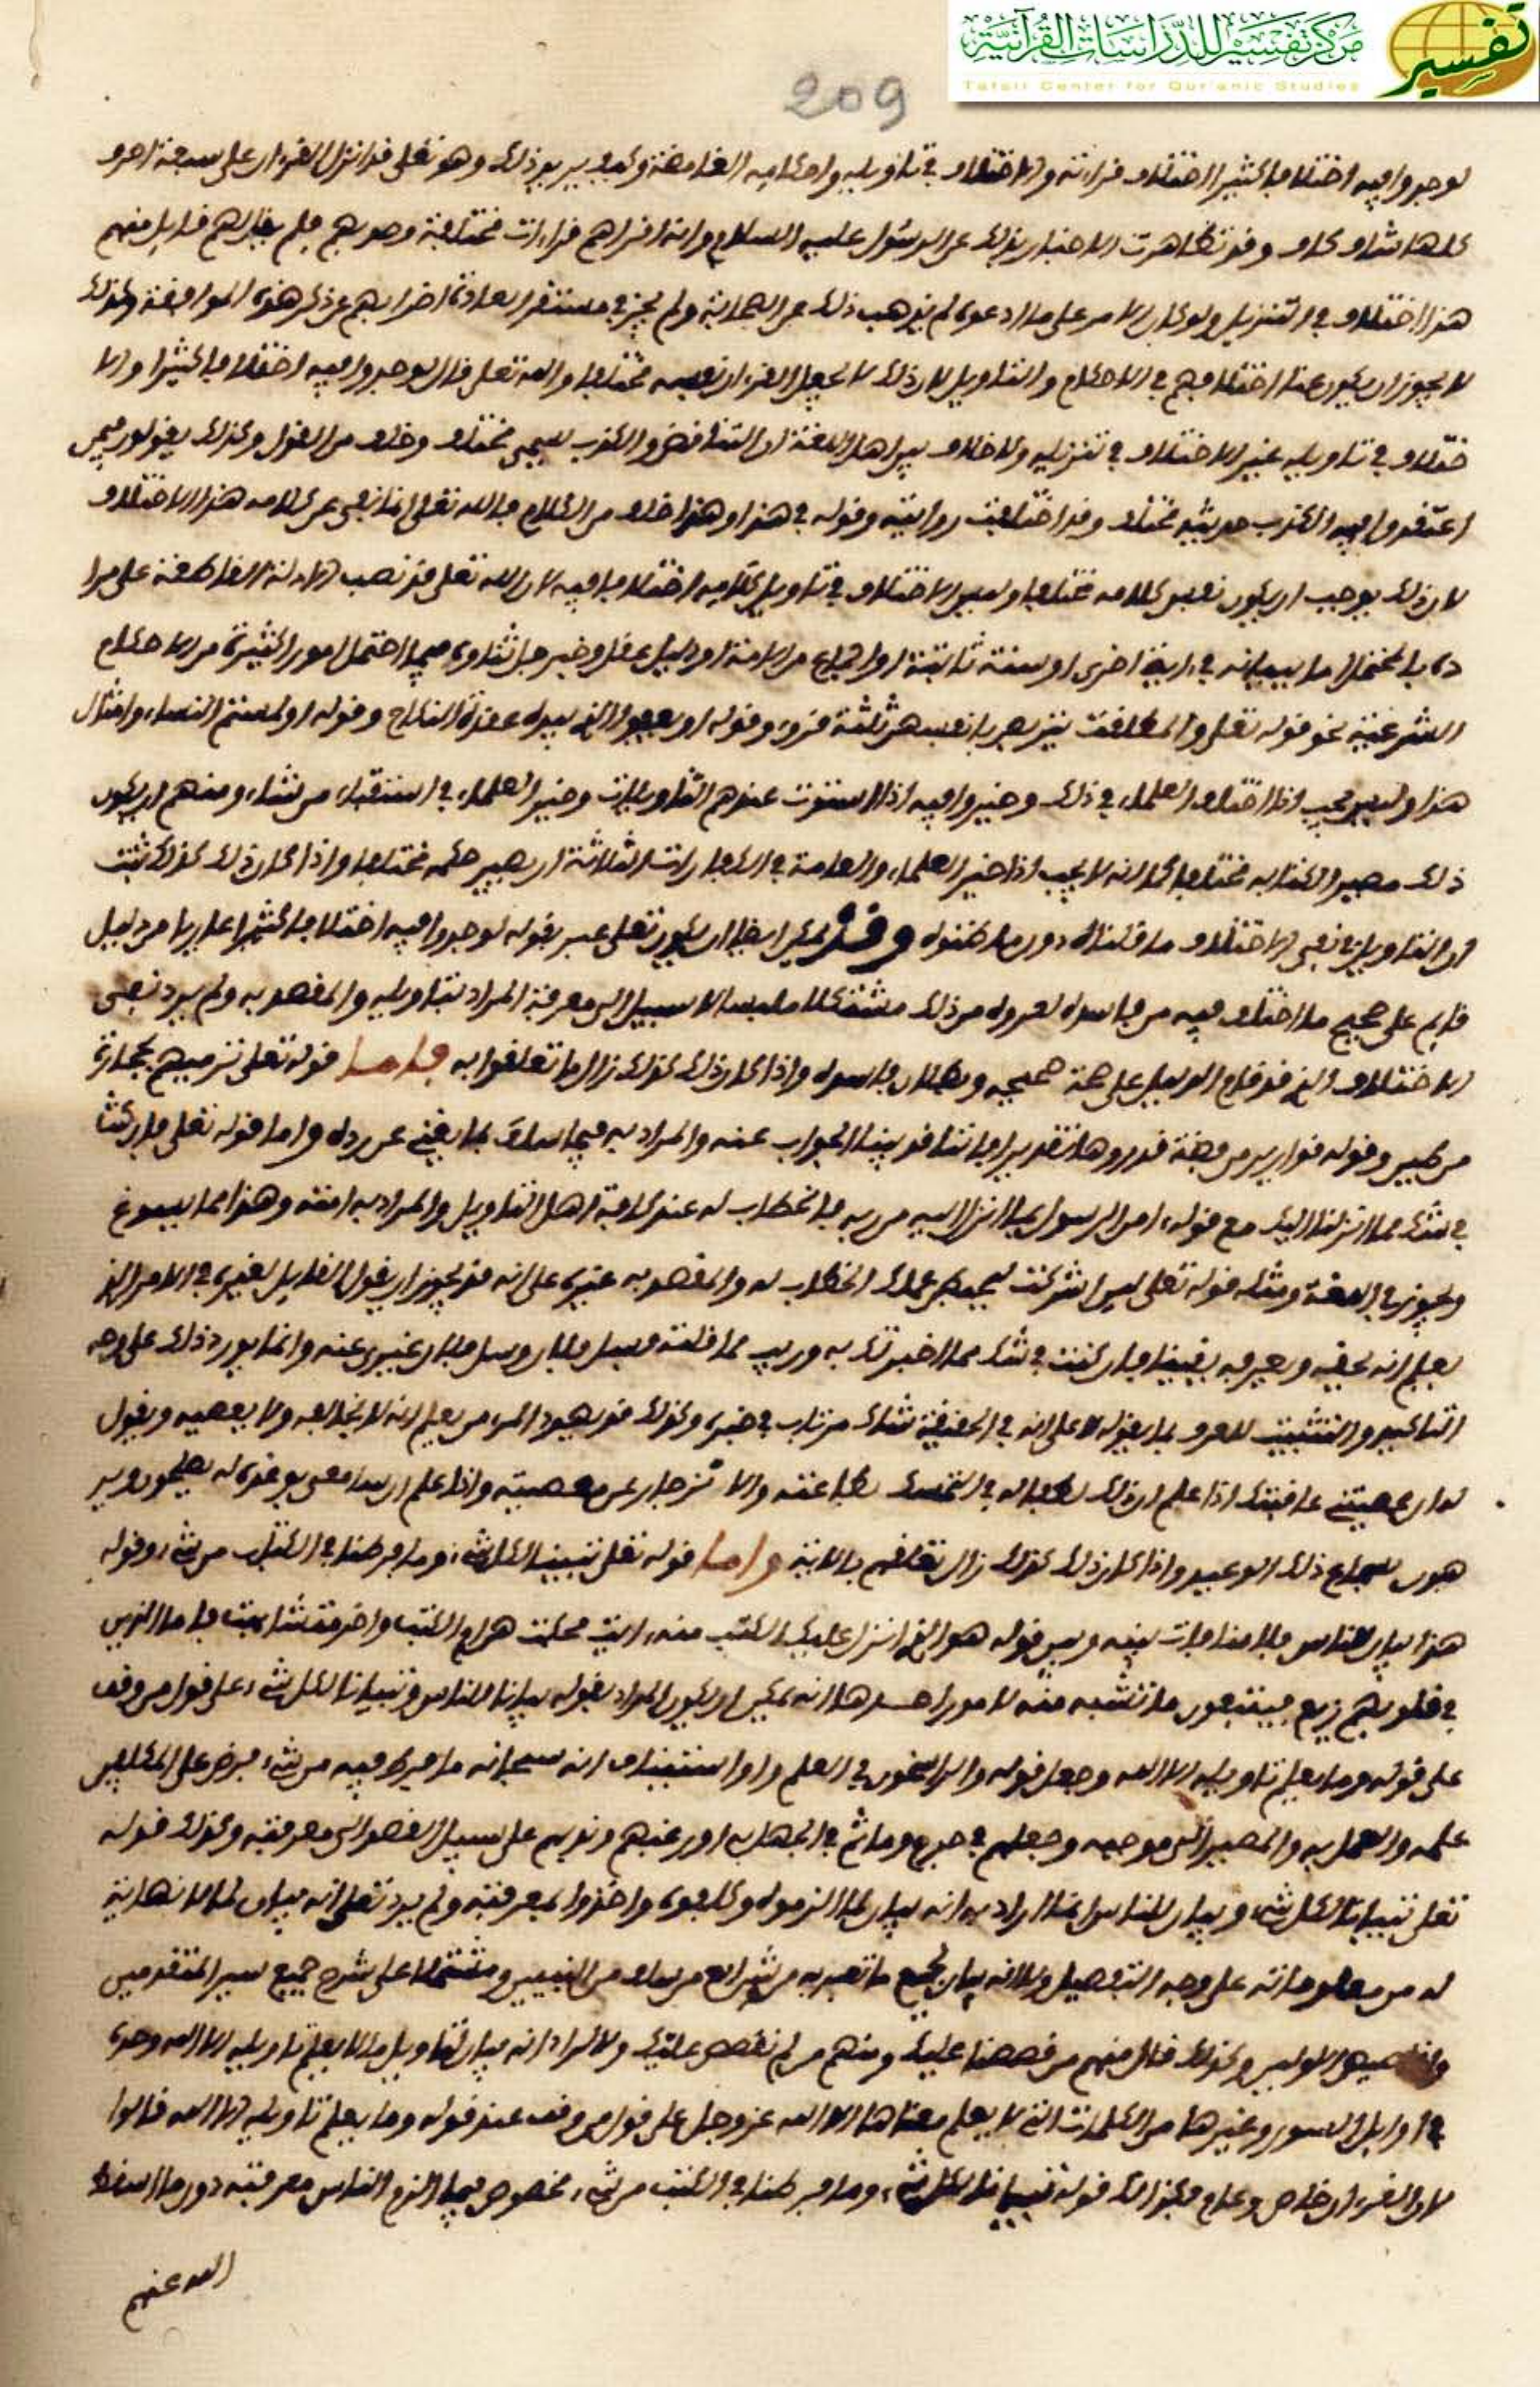 مركز تفسير للدراسات القرآنية
Tafsir Center for Qur'anic Studies
تفسير
209
لوجدوا فيه اختلافا كثيرا اختلاف قراءته والاختلاف في تاويله واحكامه الغامضة وكيف يريد ذلك وهو تعلى قد انزل القرءان على سبعة احرف
كلها شاف كاف وقد تظاهرت الاخبار بذلك عن الرسول عليه السلام وانه اقراهم قراءات مختلفة وصوبهم فلم يقل لهم قايل منهم
هذا اختلاف في التنزيل ولو كان الامر على ما ادعوه لم يذهب ذلك عن الصحابة ولم يجز في مستقر العادة اضرابهم عن ذكر هذه الموافقة وكذلك
لا يجوز ان يكون عنا اختلافهم في الاحكام والتاويل لان ذلك لا يجعل القرءان نفسه مختلفا والله تعلى قال لوجدوا فيه اختلافا كثيرا والا
ختلاف في تاويله غير الاختلاف في تنزيله ولا خلاف بين اهل اللغة ان التناقض والكذب يسمى مختلف وخلف من القول وكذلك يقولون فيمن
اعتقدوا فيه الكذب حديثه مختلف وقد اختلفت روايته وقوله في هذا وهذا خلف من الكلام فالله تعلى انما نفى عن كلامه هذا الاختلاف
لان ذلك يوجب ان يكون نفس كلامه مختلفا وليس الاختلاف في تاويل كلامه اختلافا فيه لان الله تعلى قد نصب الادلة القاطعة على مرا
ده بالمختمل اما ببيانه في اية اخرى او سنة ثابتة او اجماع من الامة او دليل عقل وخبر فما نتاوى فيما احتمل امورا كثيرة من الاحكام
الشرعية نحو قوله تعلى والمطلقت يتربصن بانفسهن ثلثة قروء وقوله او يعفوا الذي بيده عقدة النكاح وقوله او لمستم النساء وامثال
هذا وليس يجب اذا اختلف العلماء في ذلك وخيروا فيه اذا استوت عندهم التاويلات وخير العلماء في استفتاء من شاء ومنهم ان يكون
ذلك مصيرا لكتابه مختلفا كما انه لا يجب اذا خير العلماء والعامة في الكفارات الثلاثة ان يصير حكمه مختلفا واذا كان ذلك كذلك ثبت
ان التاويل في نفي الاختلاف ما قلناه دون ما ظنوه وقد يمكن ايضا ان يكون تعلى عبر بقوله لوجدوا فيه اختلافا كثيرا عاريا من دليل
قايم على صحيح ما اختلف فيه من فاسده لعروه من ذلك مشتكلا ملبسا لا سبيل الى معرفة المراد بتاويله والمقصد به ولم يرد نفى
الاختلاف الذي قد قام الدليل على صحة صحيحه وبطلان فاسده واذا كان ذلك كذلك زال ما تعلقوا به فاما قوله تعلى ترميهم بحجارة
من طين وقوله قوارير من فضة قدروها تقديرا فاننا قد بينا الجواب عنه والمراد به فيما سلف بما يغني عن رده واما قوله تعلى فان كنت
في شك مما انزلنا اليك مع قوله ءامن الرسول بما انزل اليه من ربه فالخطاب له عند كافة اهل التاويل والمراد به امته وهذا مما يسوغ
ويجوز في اللغة ومثله قوله تعلى لين اشركت ليحبطن عملك الخطاب له والمقصد به غيره على انه قد يجوز ان يقول القايل لغيره في الامر الذي
يعلم انه يحقه ويعرفه يقينا فان كنت في شك مما اخبرتك به وريب مما قلته فسل فلان وسل فلان غيري عنه وانما يورد ذلك على وجه
التاكيد والتثبيت للعرف بما يقوله لا على انه في الحقيقة شاك مرتاب في خبره وكذلك قد يهدد المرء من يعلم انه لا يخالفه ولا يعصيه ويقول
لو ان عصيتني عاقبتك اذا علم ان ذلك لطفا له في التمسك بطاعته والانزجار عن معصيته واذا علم ان سامعي يوعده له يصلحون وير
هبون سماع ذلك الوعيد واذا كان ذلك كذلك زال تعلقهم بالاية واما قوله تعلى تبيينا لكل شيء وما فرطنا في الكتب من شيء وقوله
هذا بيان للناس فلا منافات بينه وبين قوله هو الذي انزل عليك الكتب منه ءايت محكمت هن ام الكتب واخر متشابهت فاما الذين
في قلوبهم زيغ فيتبعون ما تشبه منه لامور احدها انه يمكن ان يكون المراد بقوله بيانا للناس وتبيانا لكل شيء على قول من وقف
على قوله وما يعلم تاويله الا الله وجعل قوله والراسخون في العلم واوا استينافا انه سبحانه ما فرط فيه من شيء فرض على المكلفين
علمه والعمل به والمصير الى موجبه وجعلهم في حرج وماثم في الجهل به او رغبهم وندبهم على سبيل القصد الى معرفته وكذلك قوله
تعلى تبيانا لكل شيء وبيان للناس انما اراد به انه بيان لما الزموه وكلفوه واخذوا بمعرفته ولم يرد تعلى انه بيان لما لا نهاية
له من معلوماته على وجه التفصيل ولا انه بيان لجميع ما تعبد به من شرايع من سلف من النبيين ومشتملا على شرح جميع سير المتقدمين
الاولين وكذلك قال منهم من قصصنا عليك ومنهم من لم نقصص عليك ولا اراد انه بيان لتاويل ما لا يعلم تاويله الا الله وحده
في اوايل السور وغيرها من الكلمات التي لا يعلم معناها الا الله عز وجل على قول من وقف عند قوله وما يعلم تاويله الا الله قالوا
لان القرءان خاص وعام فكذلك قوله تبيانا لكل شيء وما فرطنا في الكتب من شيء مخصوص فيما الزم الناس معرفته دون ما اسقط
الله عنهم